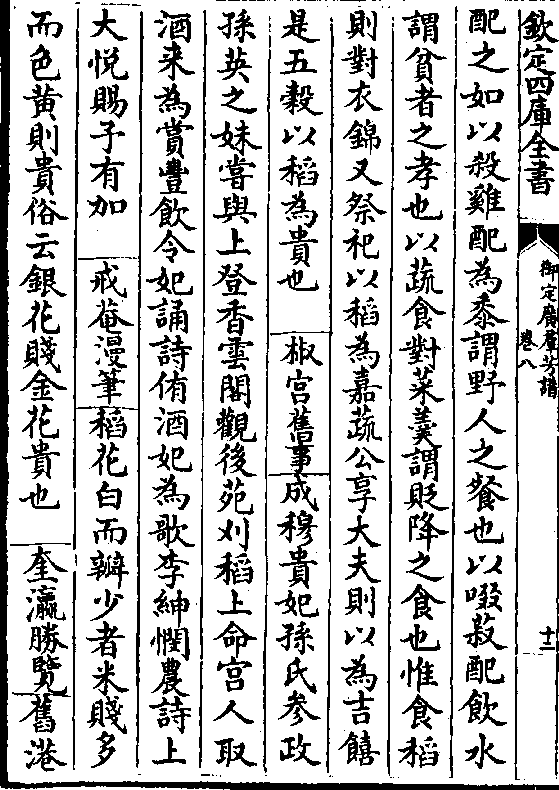 欽定四庫全書
御定廣羣芳譜
卷八
十二
配之如以殺雞配為黍謂野人之餐也以啜菽配飲水
謂貧者之孝也以蔬食對菜羹謂貶降之食也惟食稻
則對衣錦又祭祀以稻為嘉蔬公享大夫則以為吉饎
是五穀以稻為貴也　椒宮舊事成穆貴妃孫氏參政
孫英之妹嘗與上登香雲閣觀後苑刈稻上命宮人取
酒来為賞豐飲令妃誦詩侑酒妃為歌李紳憫農詩上
大悦賜予有加　戒菴漫筆稻花白而瓣少者米賤多
而色黄則貴俗云銀花賤金花貴也　奎瀛勝覽舊港